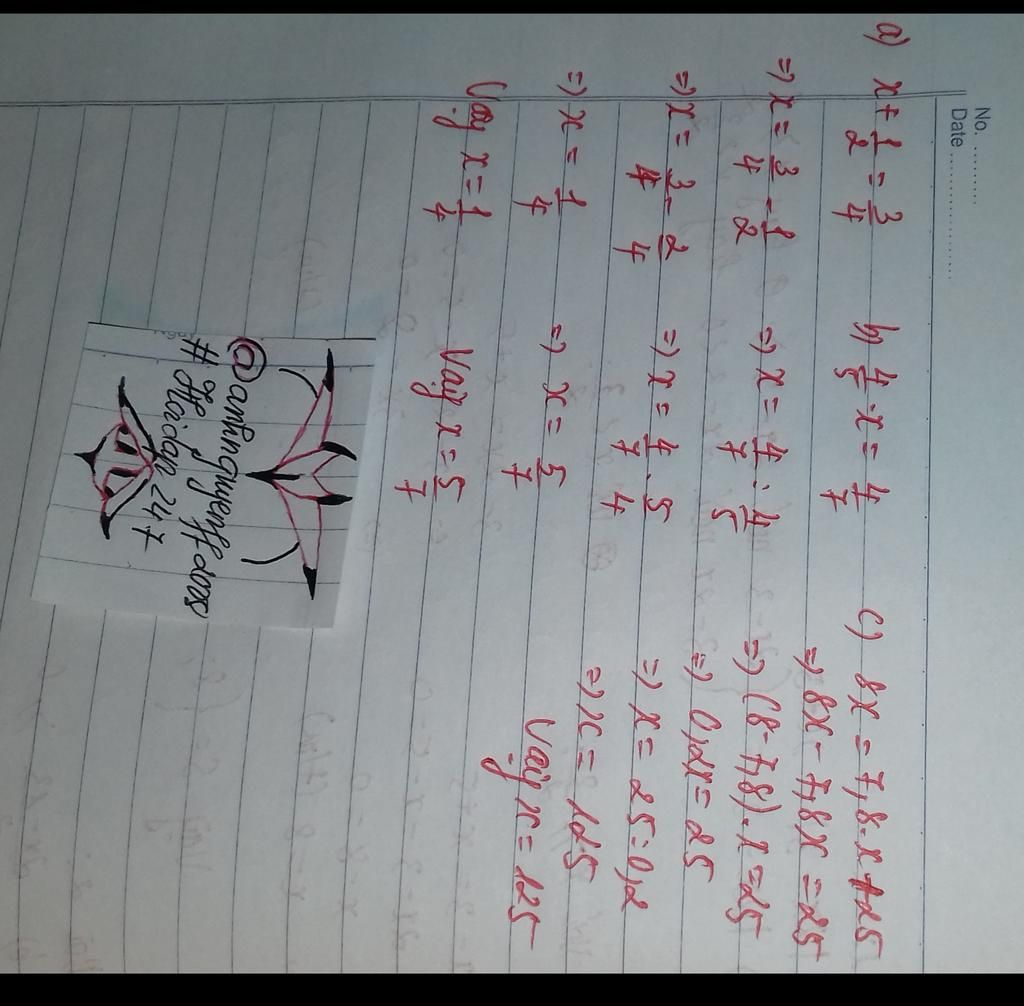 No. ..........
Date ......................
a) x + 1/2 = 3/4
=> x = 3/4 - 1/2
=> x = 3/4 - 2/4
=> x = 1/4
Vậy x = 1/4
b) 4/5 . x = 4/7
=> x = 4/7 : 4/5
=> x = 4/7 . 5/4
=> x = 5/7
Vậy x = 5/7
c) 8x = 7,8 . x + 25
=> 8x - 7,8x = 25
=> (8 - 7,8) . x = 25
=> 0,2x = 25
=> x = 25 : 0,2
=> x = 125
Vậy x = 125
# Hoidap 247